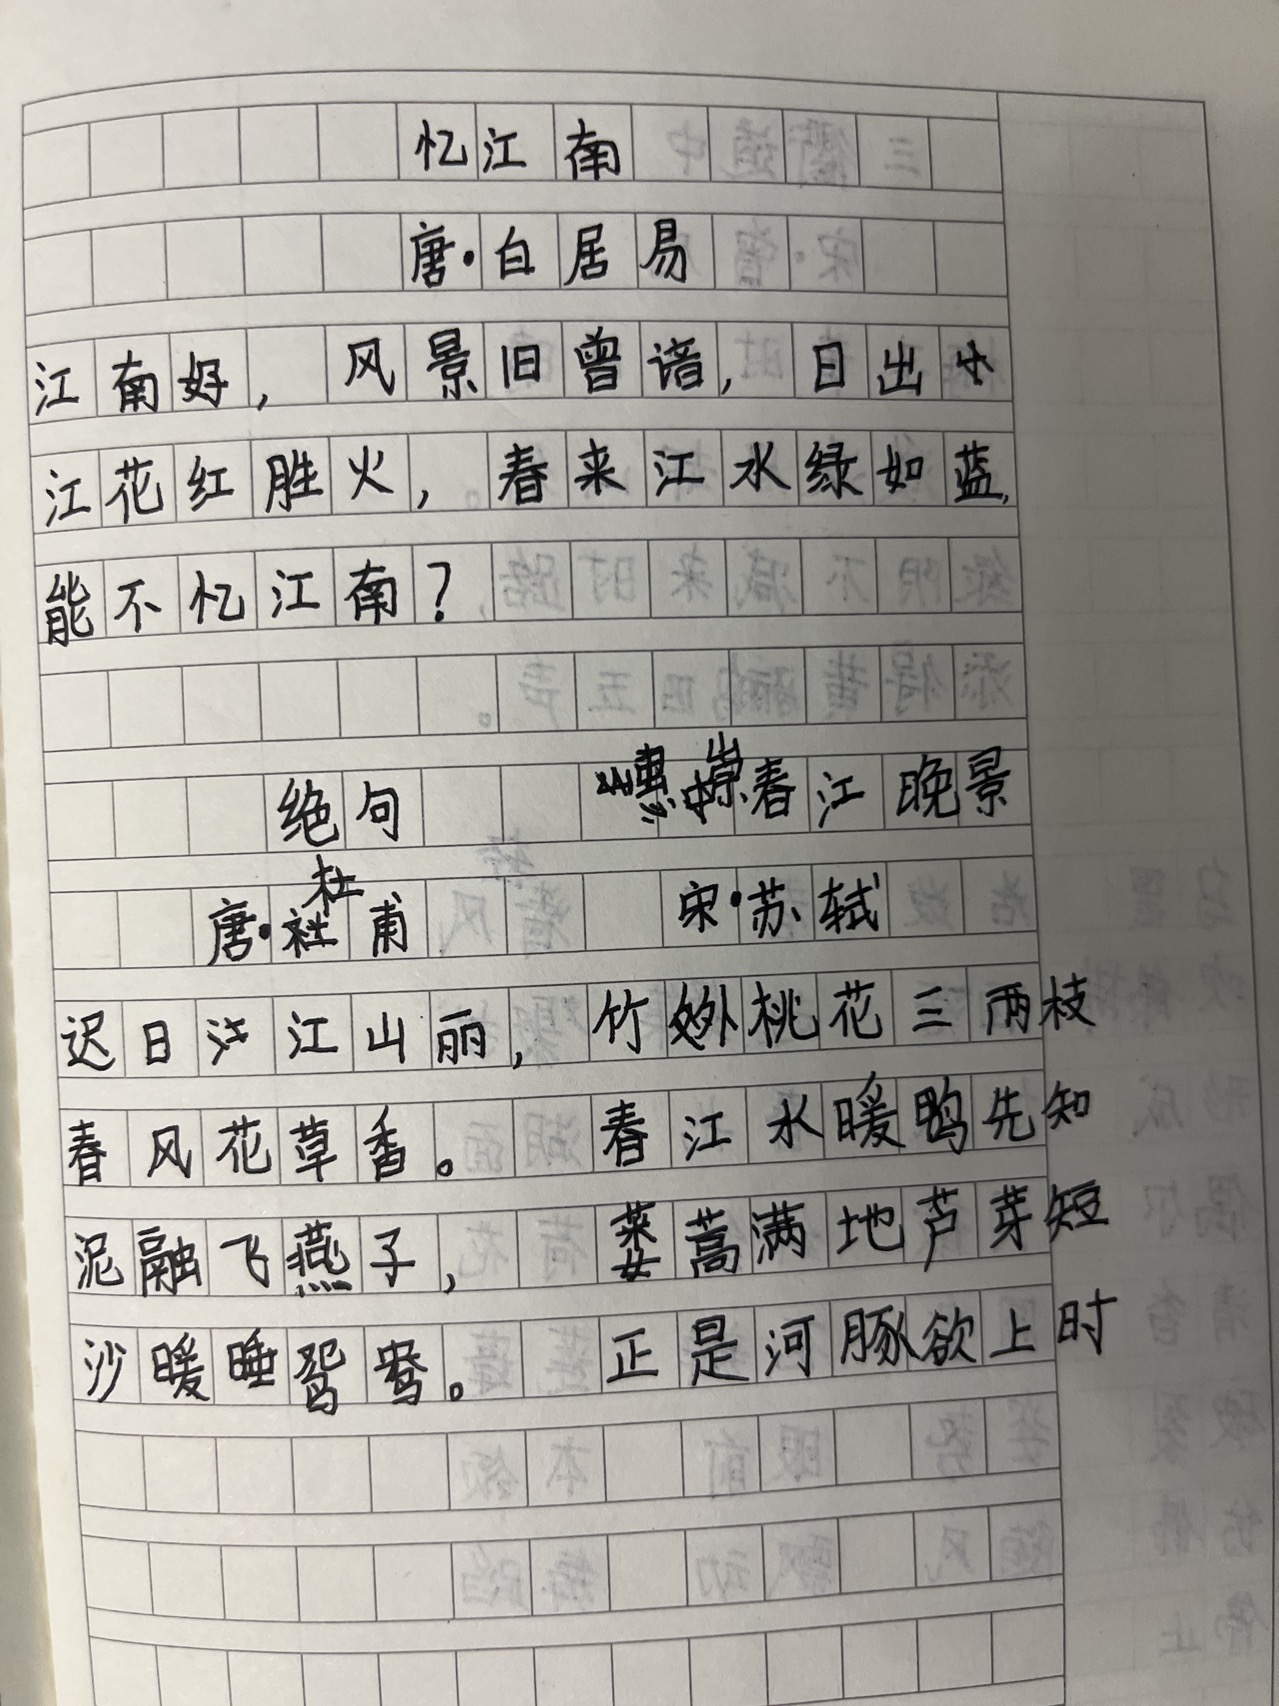 忆江南
唐·白居易
江南好，风景旧曾谙，日出
江花红胜火，春来江水绿如蓝，
能不忆江南？
绝句
唐·杜甫
迟日江山丽，
春风花草香。
泥融飞燕子，
沙暖睡鸳鸯。
惠崇春江晚景
宋·苏轼
竹外桃花三两枝
春江水暖鸭先知
蒌蒿满地芦芽短
正是河豚欲上时